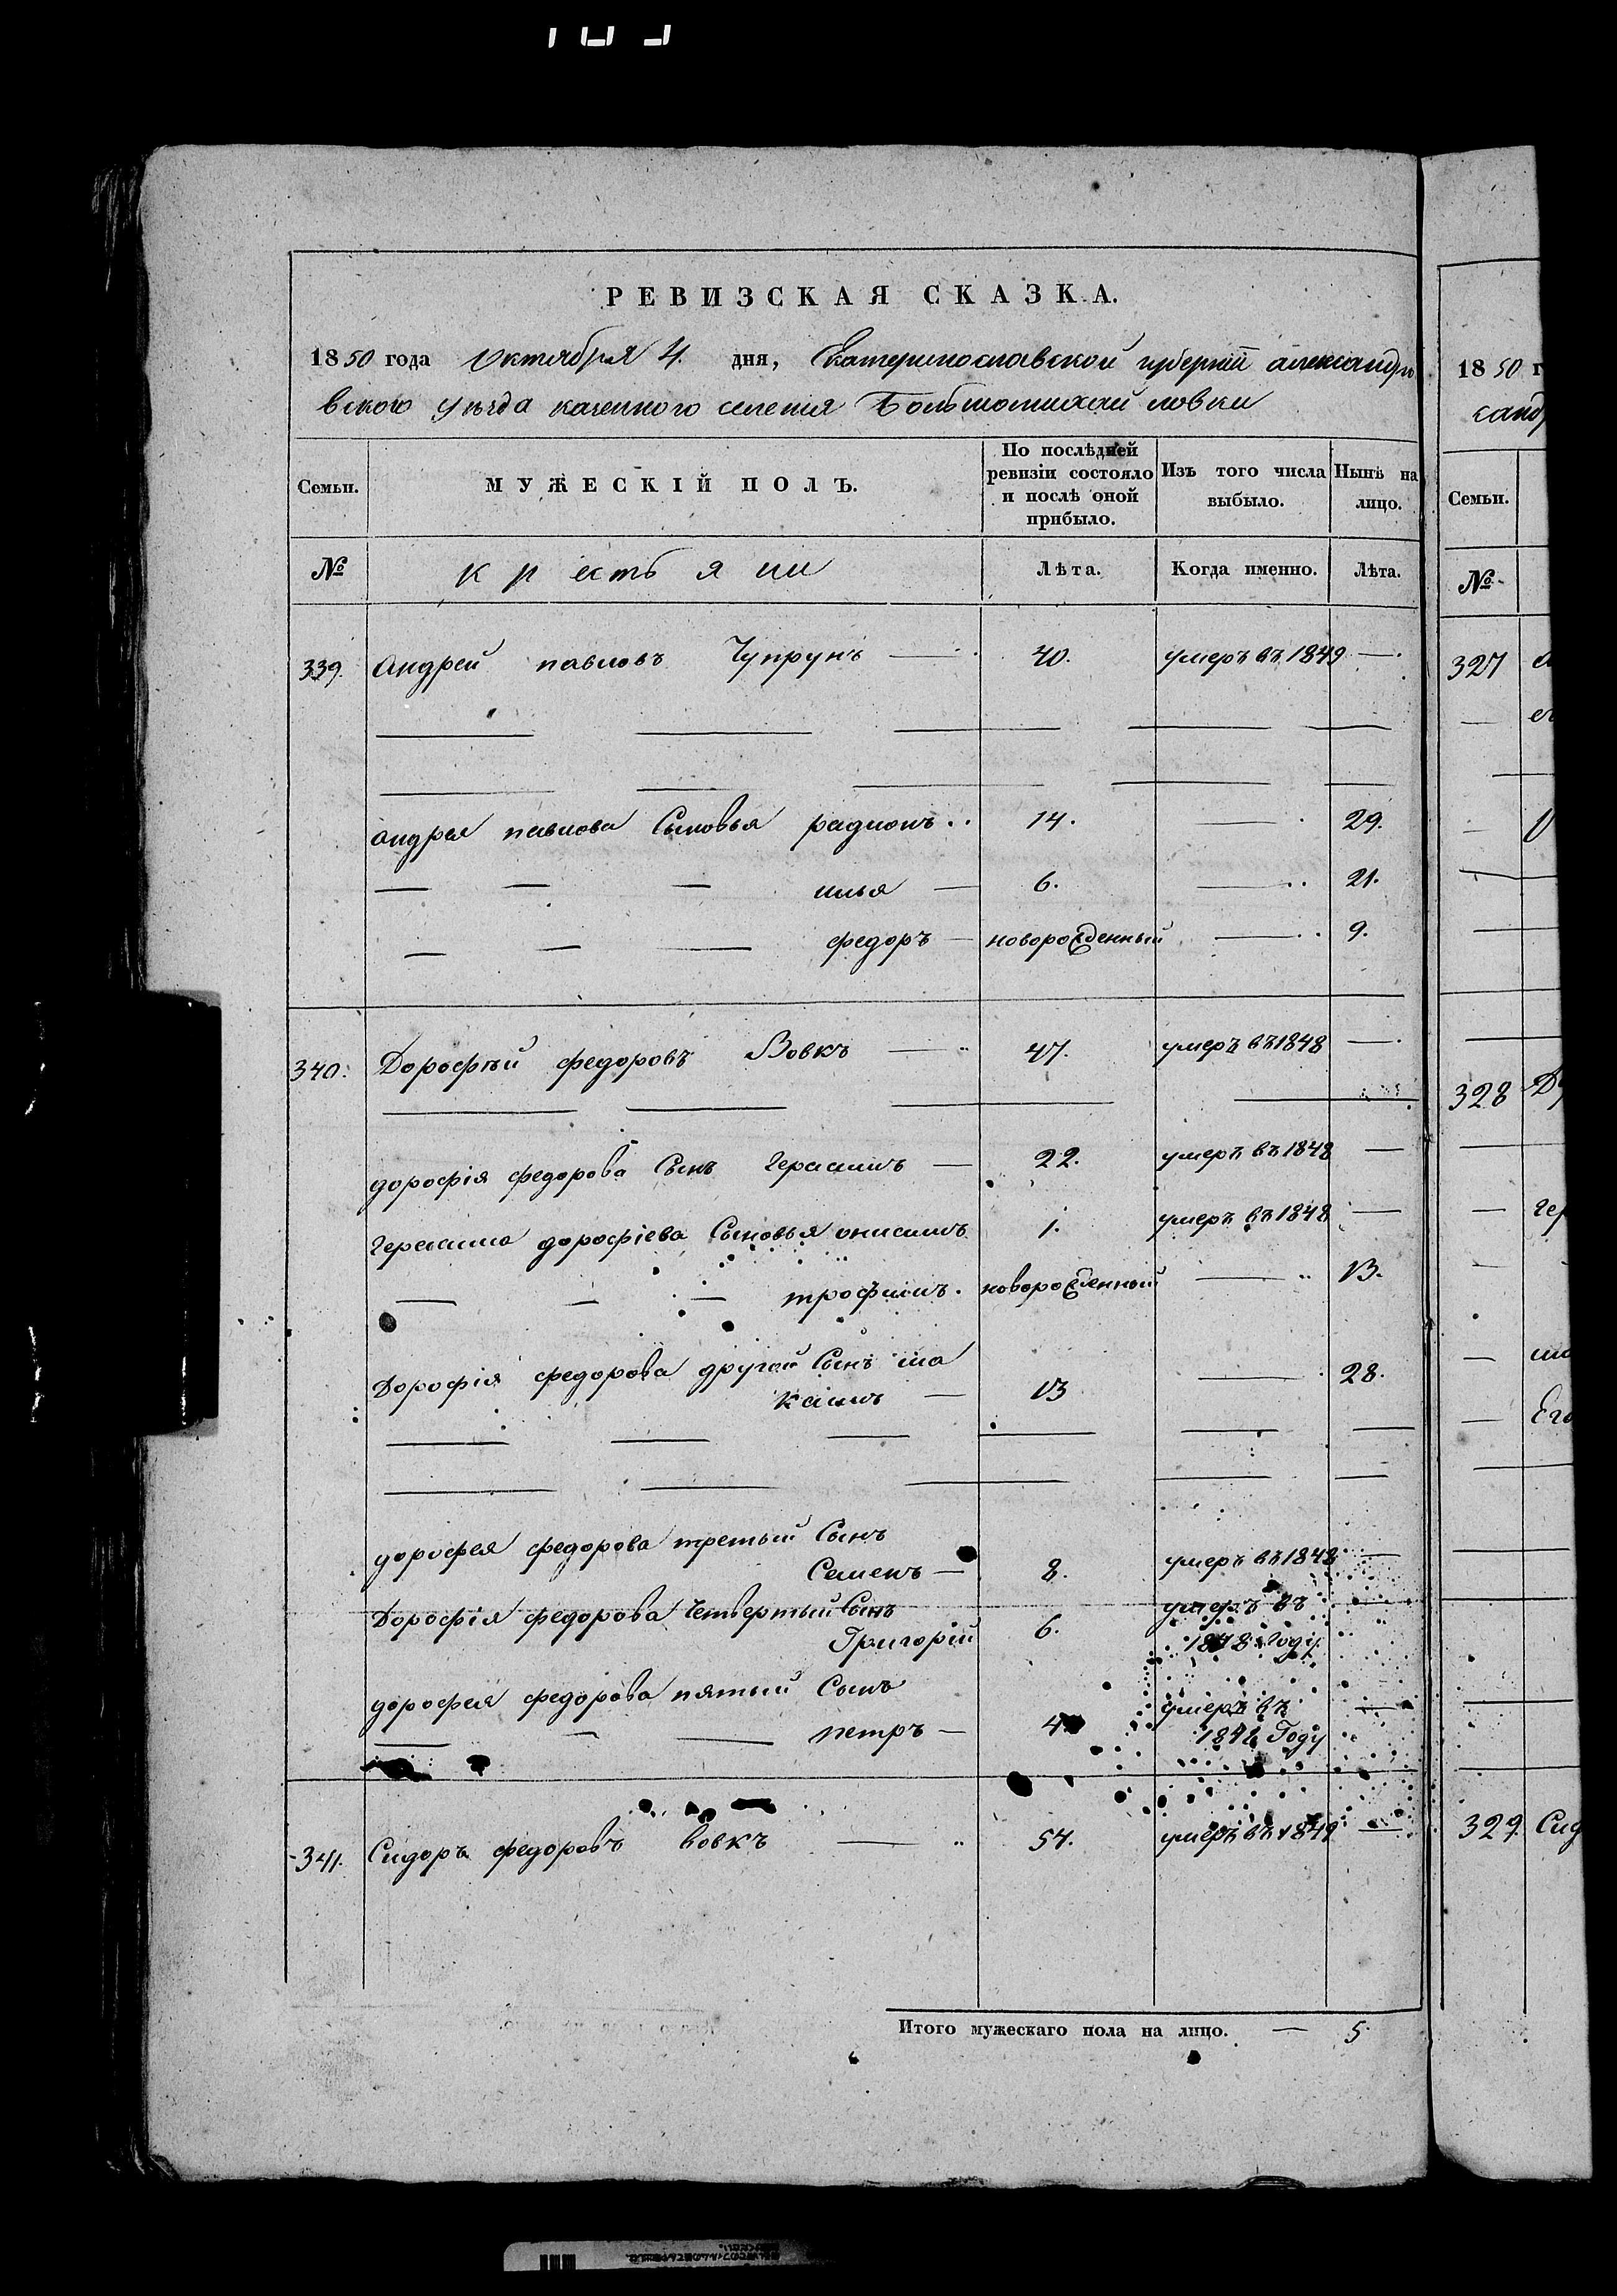 РЕВИЗСКАЯ СКАЗКА.
1850 года Октября 4. дня, Екатеринославской губернїи александро
вского уѣзда казенного селения Большомихай ловки
Семьи.
МУЖЕСКІЙ ПОЛЪ.
По послѣдней
ревизіи состояло
и послѣ оной
прибыло.
Изъ того числа
выбыло.
Нынѣ на
лицо.
№ крестьяни Лѣта. Когда именно. Лѣта.
339. Андрей павловъ Чупрунъ — 40. умеръ въ 1849 —
андрея павлова Сыновья радионъ.. 14. — 29.
— — — илья — 6. — 21.
— — — федоръ — новорожденный — 9.
340. Дорофѣй федоровъ Вовкъ — 47. умеръ въ 1848 —
дорофія федорова Сынъ Герасимъ — 22. умеръ въ 1848 —
Герасима дорофіева Сыновья онисимъ 1. умеръ въ 1848 —
— — — трофимъ. новорожденный — 13.
Дорофія федорова другой Сынъ ма
кимъ — 13 — 28.
дорофея федорова третьий Сынъ
Семенъ — 8. умеръ въ 1848 —
Дорофія федорова Четвертый Сынъ умеръ въ —
Григорій 6. 1848 Году
дорофея федорова пятый Сынъ умеръ въ —
— — — петръ — 4 1848 Году
341. Сидоръ федоровъ вовкъ — 54. умеръ въ 1849 —
Итого мужескаго пола на лицо. — 5
1850 г
санд
Семьи.
№
327
328
гер
Его
329 Сид